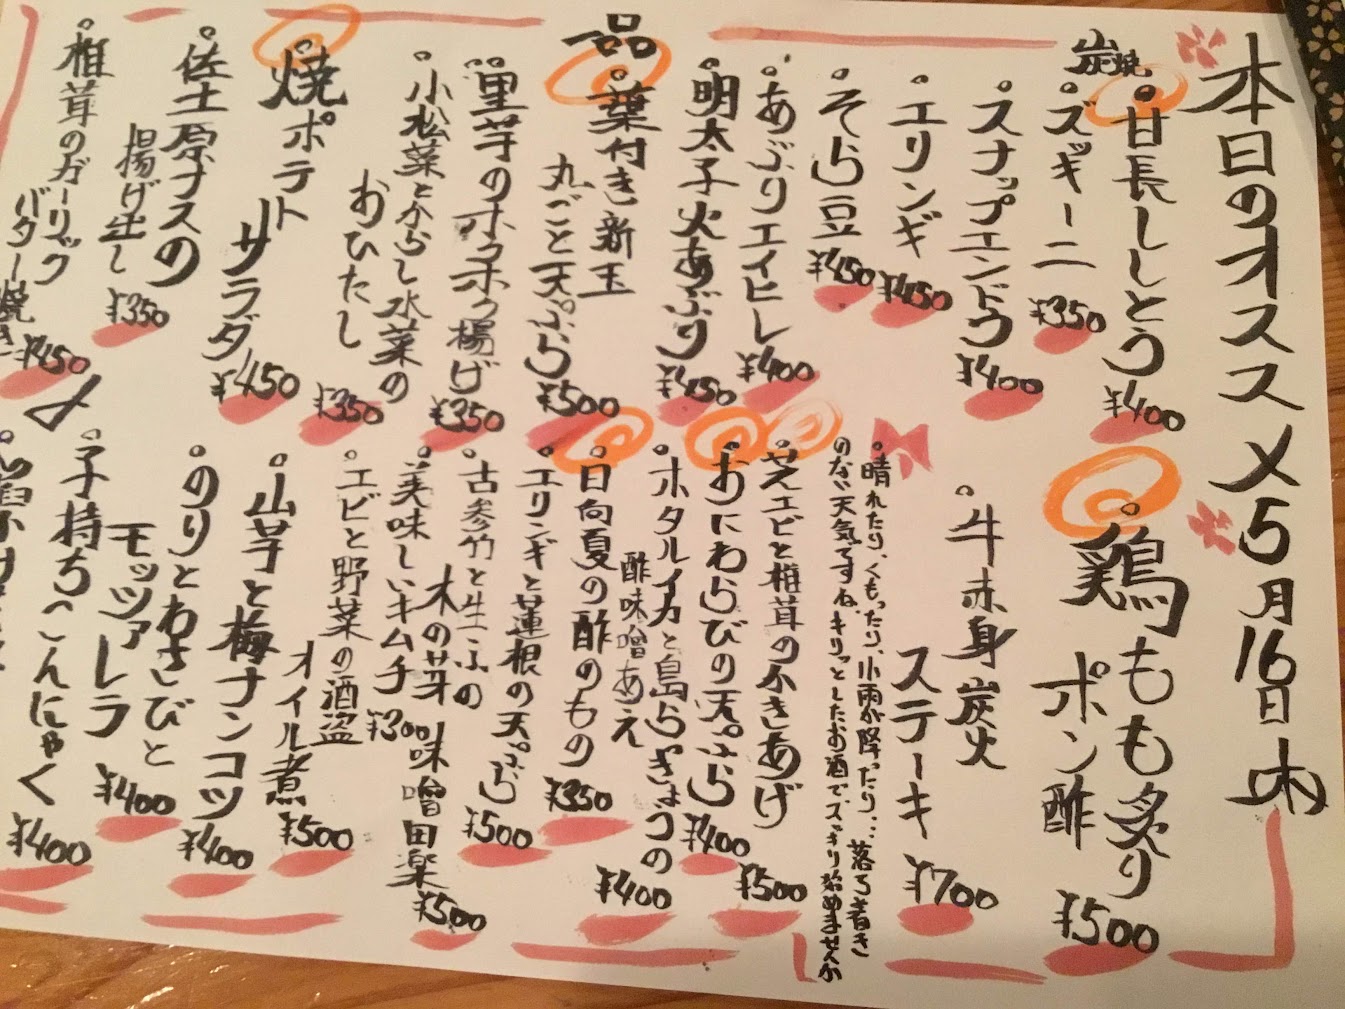 本日のオススメ 5月16日
炭焼
甘長ししとう ¥400
ズッキーニ ¥350
スナップエンドウ ¥400
エリンギ ¥450
そら豆 ¥450
あぶりエイヒレ ¥400
明太子火あぶり ¥450
一品
葉付き新玉
丸ごと天ぷら ¥500
里芋のホクホク揚げ ¥350
小松菜とからし水菜の
おひたし ¥350
焼ポテト
サラダ ¥450
佐土原ナスの
揚げ出し ¥350
椎茸のガーリック
バター焼き ¥450
肉
鶏もも炙り
ポン酢 ¥500
牛赤身炭火
ステーキ ¥700
晴れたり、くもったり、小雨が降ったり…落ち着き
のない天気ですね。キリッとしたお酒でスッキリ始めませんか
芝エビと椎茸のかきあげ ¥500
おにわらびの天ぷら ¥400
ホタルイカと島らっきょうの
酢味噌あえ ¥400
日向夏の酢のもの ¥350
エリンギと蓮根の天ぷら ¥500
古参竹と生ふの
木の芽味噌田楽 ¥500
美味しいキムチ ¥300
エビと野菜の酒盗
オイル煮 ¥500
山芋と梅ナンコツ ¥400
のりとわさびと
モッツァレラ ¥400
子持ちこんにゃく ¥400